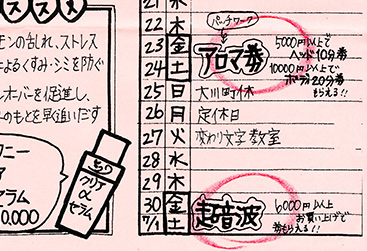 ススス
モンの乱れ、ストレス
によるくすみ・シミを防ぐ
ルオーバーを促進し、
のもとを早追いだす
ワニー
ア
ラム
0,000
ヒミツ
クリア
α
セラム
21 水
22 木
23 金
24 土
パッチワーク
アロマ券
5000円以上で
ヘッド10分券
10000円以上で
ボディ20分券
もらえる!!
25 日 大川町休
26 月 定休日
27 火 変わり文字教室
28 水
29 木
30 金
7/1 土
超音波
6000円以上
お買い上げで
券もらえる!!